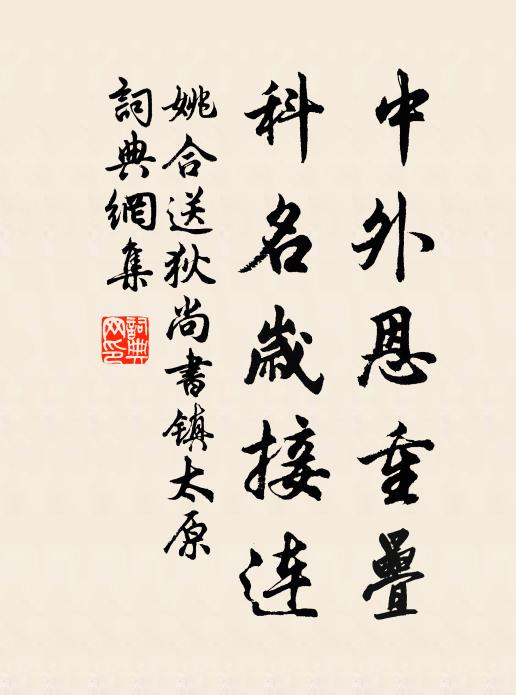 中外恩重疊
科名歲接連
姚合送狄尚書鎮太原
詞典網集
詞典网印